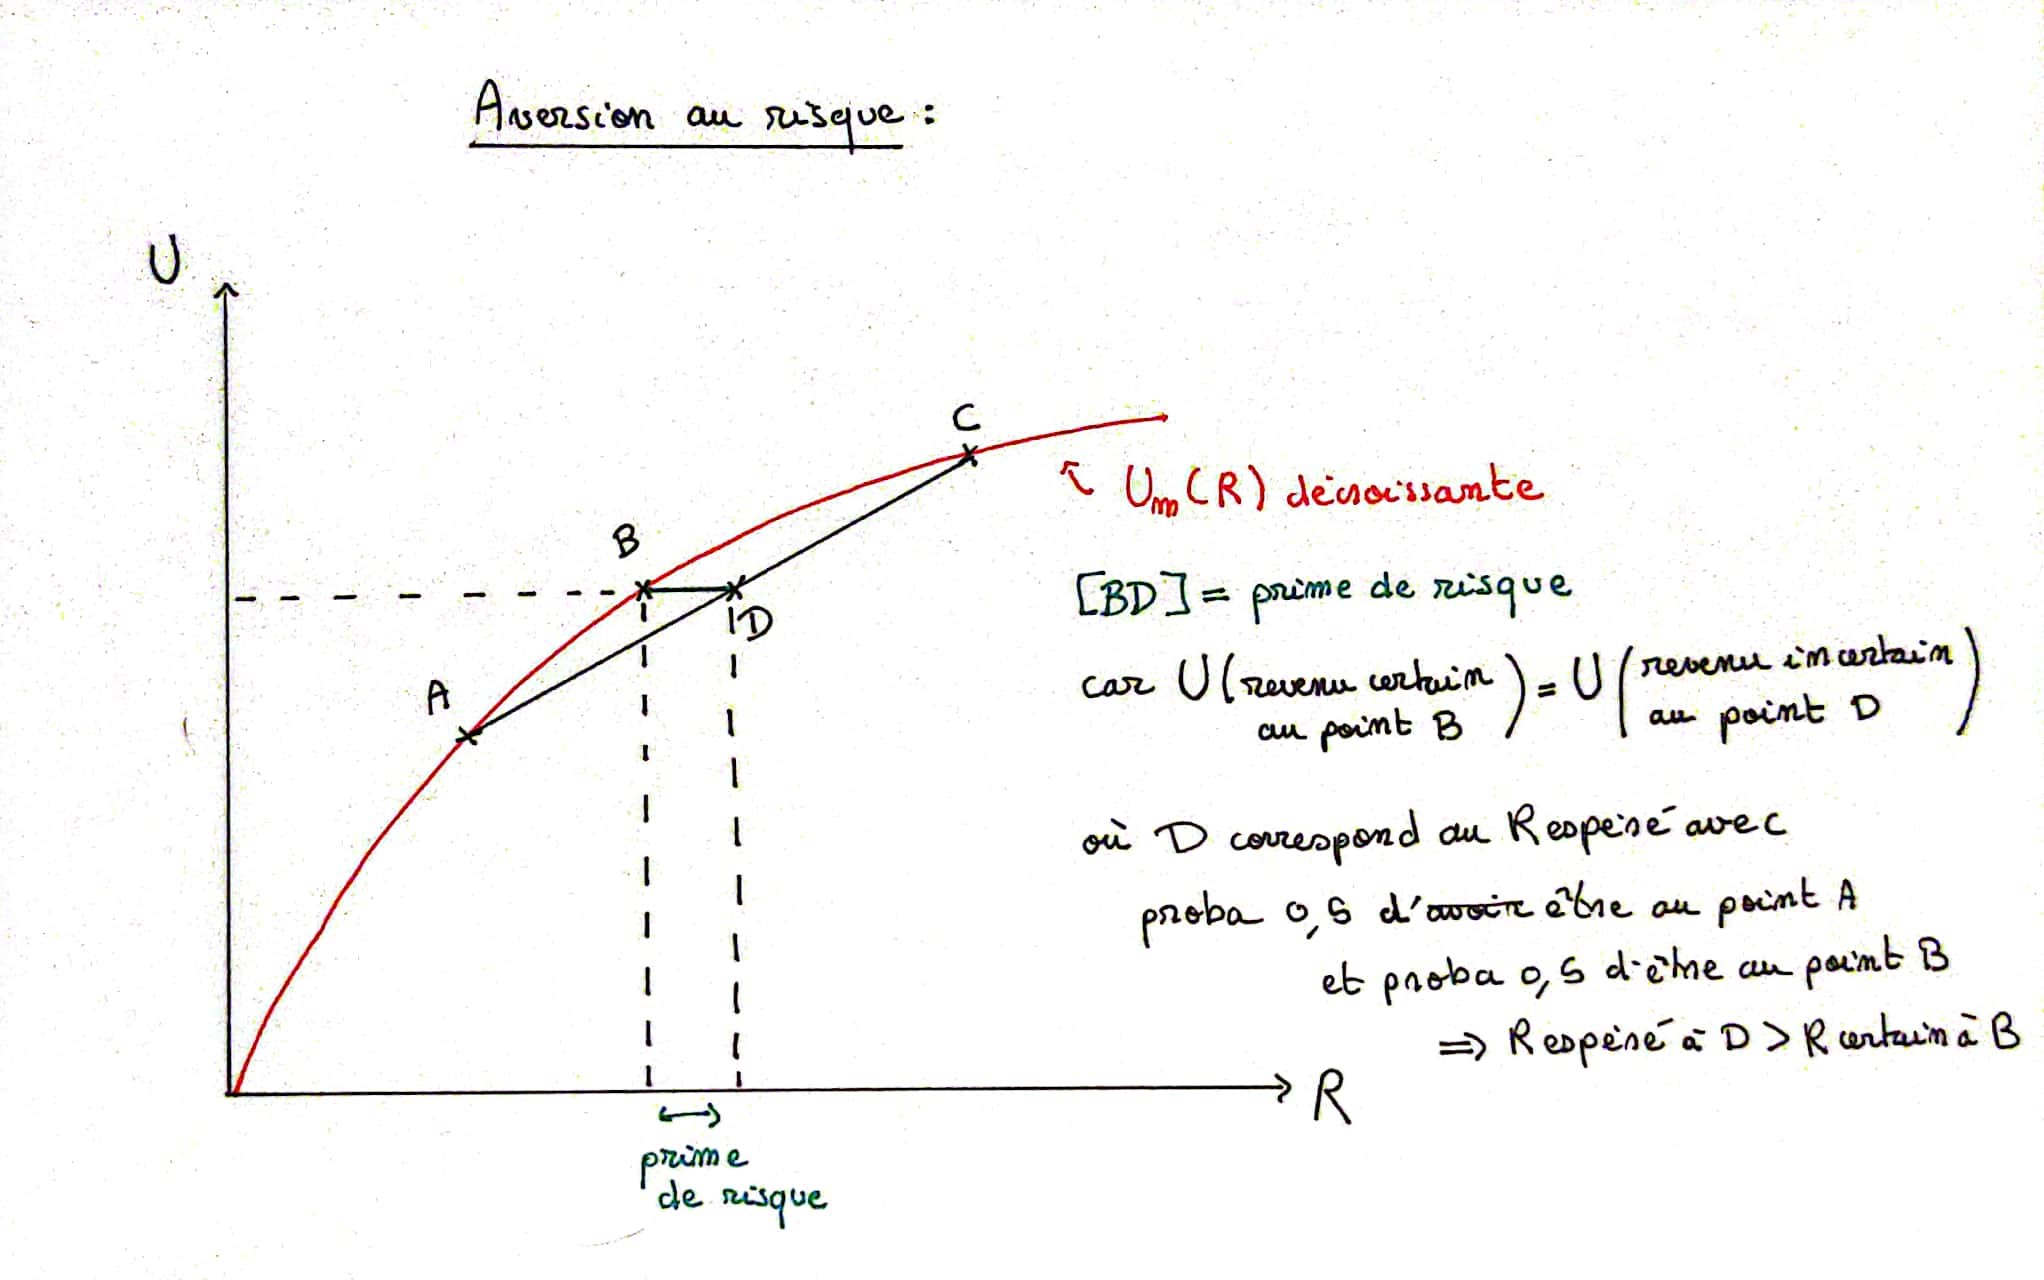 Aversion au risque :
U
C
Um(R) décroissante
B
[BD] = prime de risque
D
A
car U(revenu certain au point B) = U(revenu incertain au point D)
où D correspond au R espéré avec
proba 0,5 d'avoir être au point A
et proba 0,5 d'être au point B
⇒ R espéré à D > R certain à B
R
prime
de risque